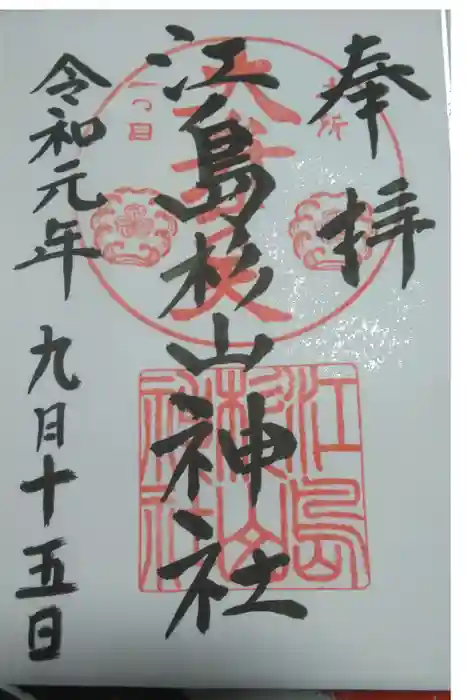 奉拝
江島杉山神社
令和元年 九月十五日
本所
一つ目
江島
杉山
神社